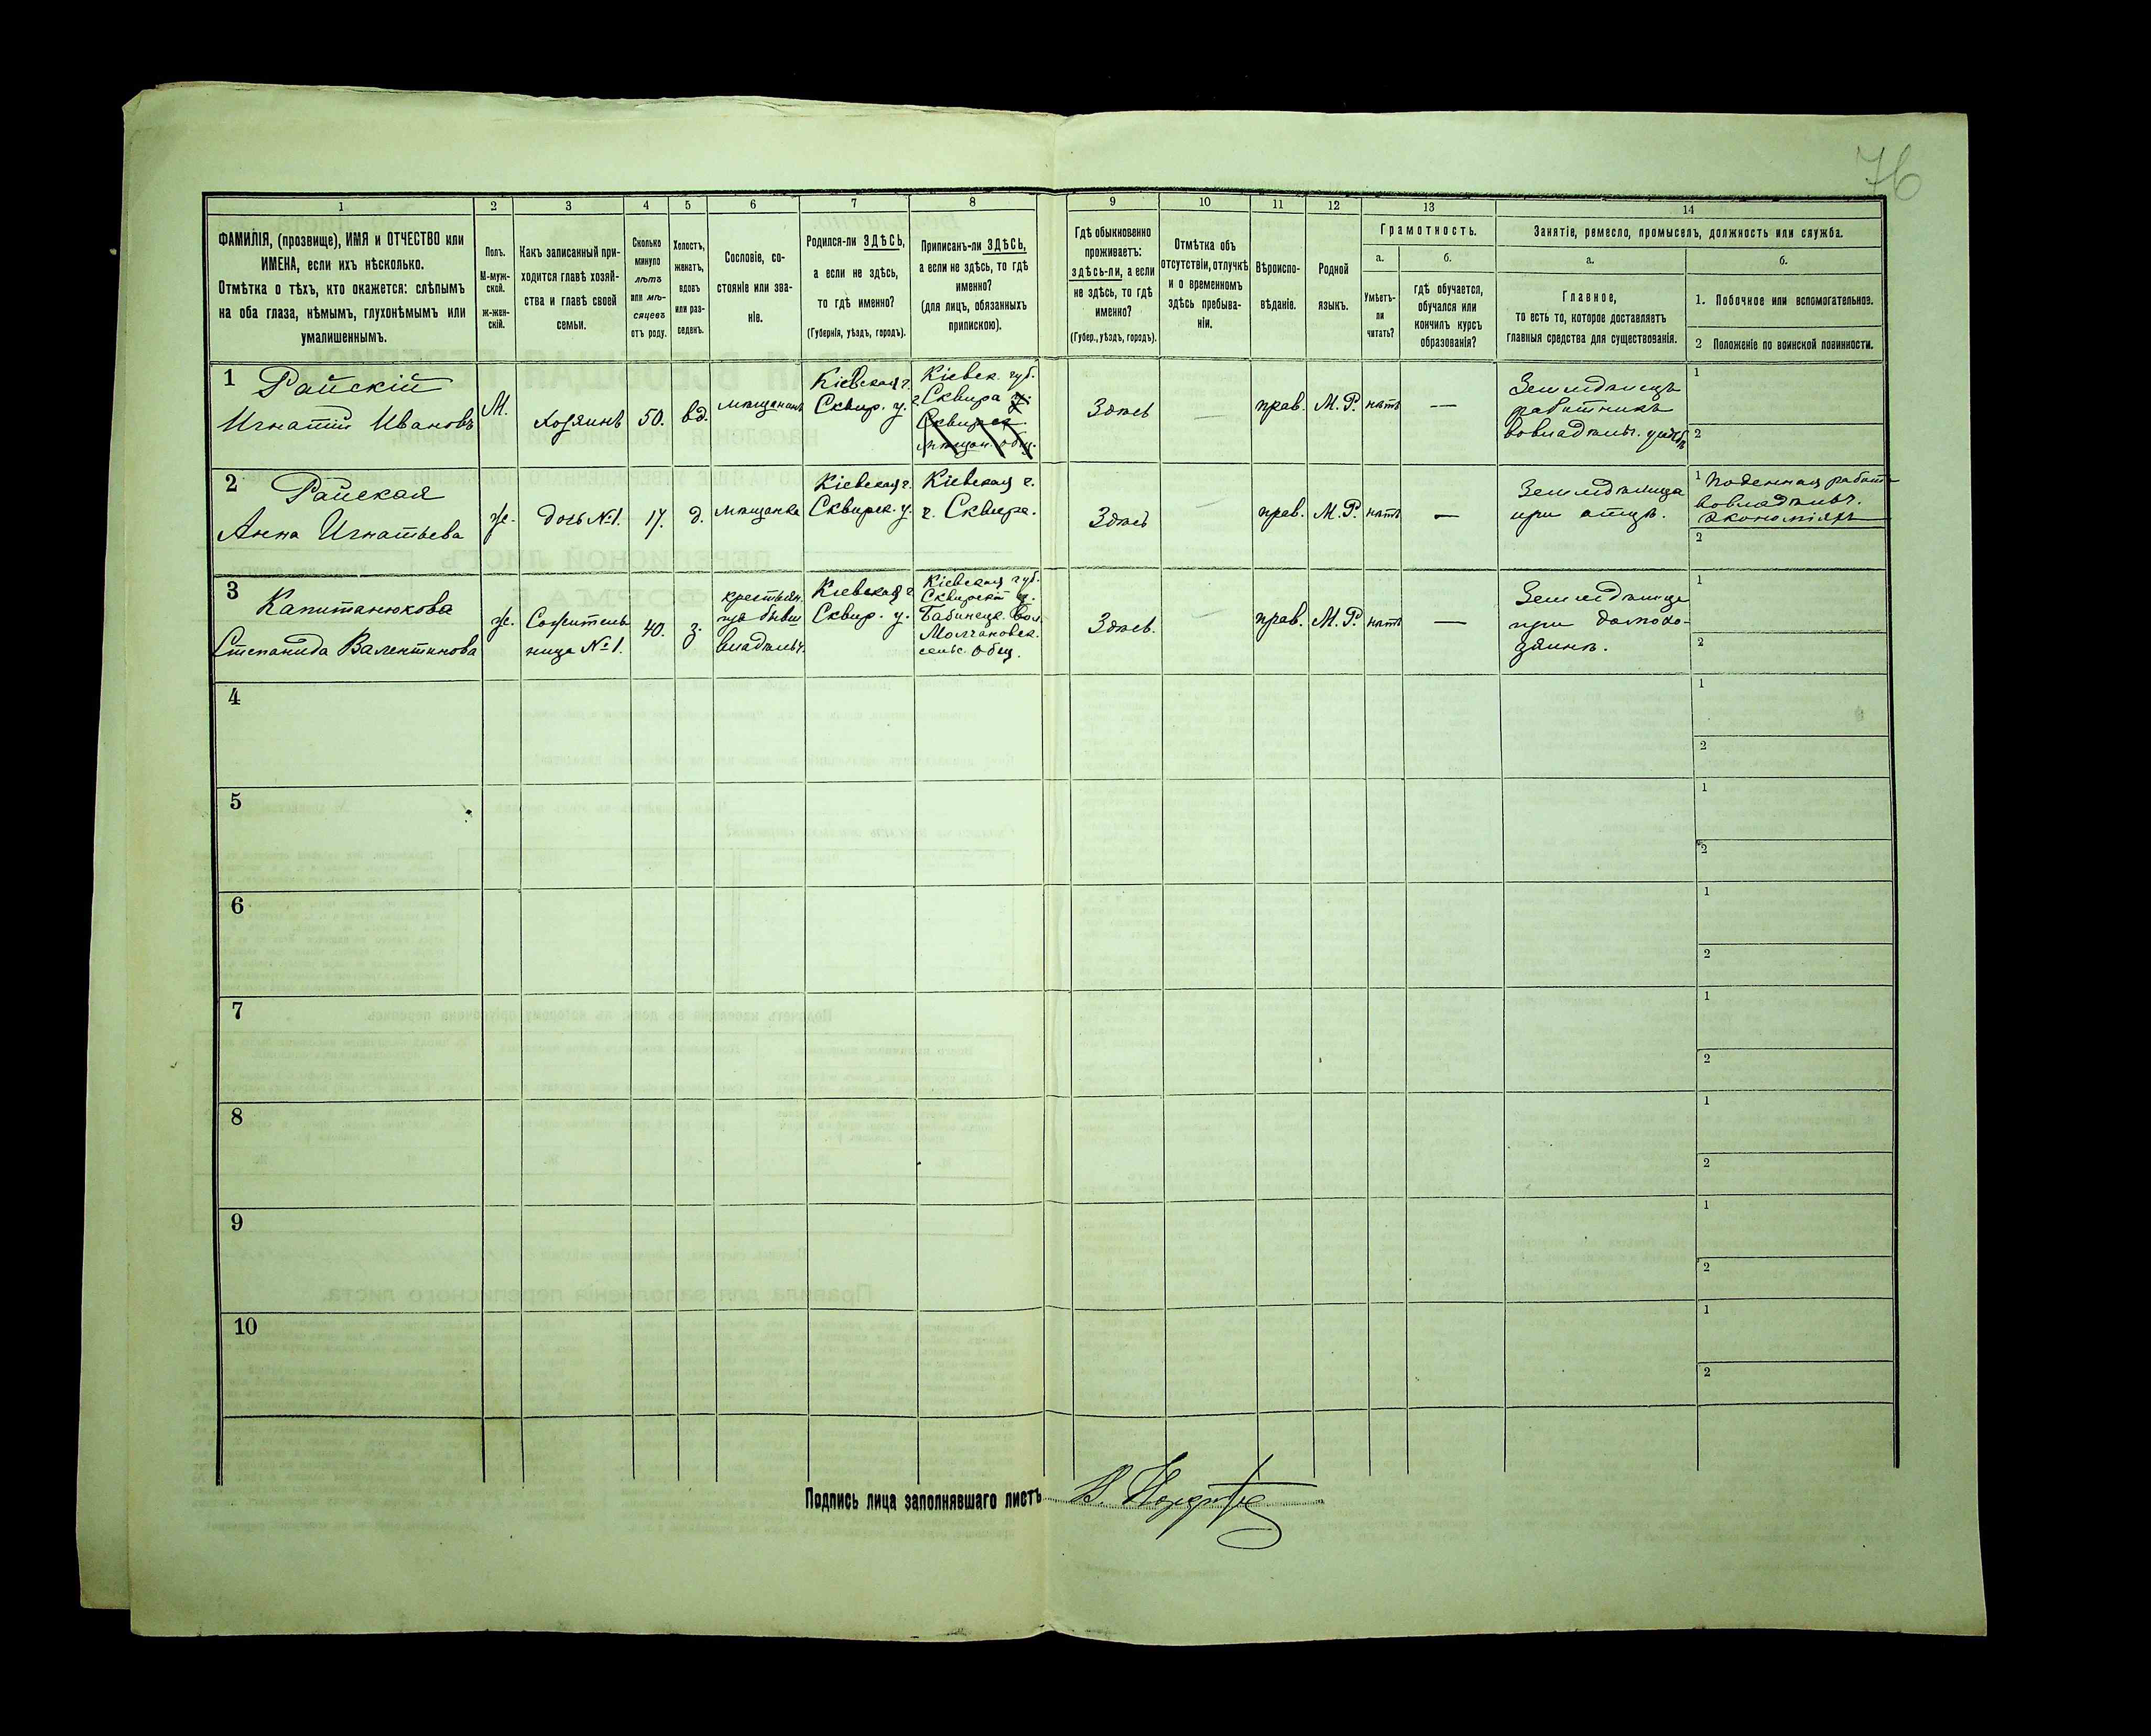 76
1 2 3 4 5 6 7 8 9 10 11 12 13 14
ФАМИЛІЯ, (прозвище), ИМЯ и ОТЧЕСТВО или
ИМЕНА, если ихъ нѣсколько.
Отмѣтка о тѣхъ, кто окажется: слѣпымъ
на оба глаза, нѣмымъ, глухонѣмымъ или
умалишеннымъ.
Полъ.
М-муж-
ской.
Ж-жен-
скій.
Какъ записанный при-
ходится главѣ хозяй-
ства и главѣ своей
семьи.
Сколько
минуло
лѣтъ
или мѣ-
сяцевъ
отъ роду.
Холостъ,
женатъ,
вдовъ
или раз-
веденъ.
Сословіе, со-
стояніе или зва-
ніе.
Родился-ли ЗДѢСЬ,
а если не здѣсь,
то гдѣ именно?
(Губернія, уѣздъ, городъ).
Приписанъ-ли ЗДѢСЬ,
а если не здѣсь, то гдѣ
именно?
(для лицъ, обязанныхъ
припискою).
Гдѣ обыкновенно
проживаетъ:
здѣсь-ли, а если
не здѣсь, то гдѣ
именно?
(Губер., уѣздъ, городъ).
Отмѣтка объ
отсутствіи, отлучкѣ
и о временномъ
здѣсь пребыва-
ніи.
Вѣроиспо-
вѣданіе.
Родной
языкъ.
Грамотность.
а.
Умѣетъ-
ли
читать?
б.
гдѣ обучается,
обучался или
кончилъ курсъ
образованія?
Занятіе, ремесло, промыселъ, должность или служба.
а.
Главное,
то есть то, которое доставляетъ
главныя средства для существованія.
б.
1. Побочное или вспомогательное.
2 Положеніе по воинской повинности.
1 Райскій
Игнатій Ивановъ
М.
Хозяинъ
50.
вд.
мѣщанинъ
Кіевская г.
Сквир. у.
Кіевск. губ.
г. Сквира у.
Сквирск.
мѣщан. общ.
Здѣсь
—
прав.
М. Р.
нѣтъ
—
Земледѣлецъ
работникъ
1
2
2 Райская
Анна Игнатьева
Ж.
дочь №1.
17.
д.
мѣщанка
Кіевская г.
Сквирск. у.
Кіевская г.
г. Сквира.
Здѣсь
—
прав.
М. Р.
нѣтъ
—
Земледѣлица
при отцѣ.
1 Поденная работа
вовладѣльч.
экономіяхъ
2
3 Капитанюкова
Степанида Валентинова
Ж.
Сожитель-
ница №1.
40.
з.
крестьян.
изъ бывш
владѣльч.
Кіевская г.
Сквир. у.
Кіевская губ.
Сквирскій у.
Бабинецк. вол.
Молчановск.
сельс. общ.
Здѣсь.
—
прав.
М. Р.
нѣтъ
—
Земледѣлица
при домохо-
зяинѣ.
1
2
4
1
2
5
1
2
6
1
2
7
1
2
8
1
2
9
1
2
10
1
2
Подпись лица заполнявшаго листъ